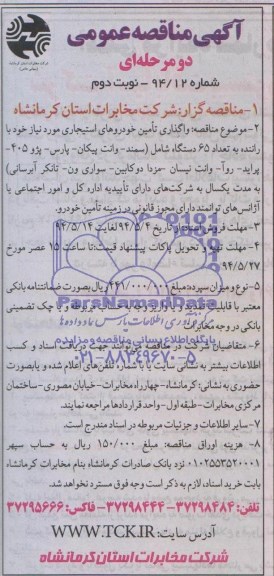 آگهی مناقصه عمومی
دو مرحله‌ای
شماره ۹۴/۱۲ - نوبت دوم
۱- مناقصه گزار: شرکت مخابرات استان کرمانشاه
۲- موضوع مناقصه: واگذاری تأمین خودروهای استیجاری مورد نیاز خود با
راننده به تعداد ۶۵ دستگاه شامل (سمند- وانت پیکان- پارس- پژو ۴۰۵-
پراید- روآ- وانت نیسان- مزدا دوکابین- سواری ون- تانکر آبرسانی)
به مدت یکسال به شرکت‌های دارای تأییدیه اداره کل و امور اجتماعی یا
آژانس‌های توانمند دارای مجوز قانونی در زمینه تأمین خودرو.
۳- مهلت فروش اسناد: از تاریخ ۹۴/۵/۴ لغایت ۹۴/۵/۱۴
۴- مهلت تهیه و تحویل پاکات پیشنهاد قیمت: تا ساعت ۱۵ عصر مورخ
۹۴/۵/۲۷
۵- نوع و میزان سپرده: مبلغ ۴۲۱/۰۰۰/۰۰۰ ریال بصورت ضمانتنامه بانکی
معتبر یا قابل تمدید و یا واریز وجه به حساب مربوطه و یا چک تضمینی
بانکی در وجه مخابرات
۶- متقاضیان شرکت در مناقصه می‌توانند جهت دریافت اسناد و کسب
اطلاعات بیشتر به نشانی سایت یا با شماره تلفن‌های اعلام شده و یا بصورت
حضوری به نشانی: کرمانشاه- چهارراه مخابرات- خیابان مصوری- ساختمان
مرکزی مخابرات- طبقه اول- واحد قراردادها مراجعه نمایند.
۷- سایر اطلاعات و جزئیات مربوطه در اسناد مندرج است.
۸- هزینه اوراق مناقصه: مبلغ ۱۵۰/۰۰۰ ریال به حساب سپهر
۰۱۰۲۵۵۳۵۲۰۰۰۱ نزد بانک صادرات کرمانشاه بنام مخابرات کرمانشاه
بابت خرید اسناد (لازم به ذکر است وجه فوق مسترد نخواهد شد.
تلفن: ۳۷۲۹۸۴۸۴ - ۳۷۲۹۸۴۴۴ - فاکس: ۳۷۲۹۵۶۶۶
آدرس سایت: WWW.TCK.IR
شرکت مخابرات استان کرمانشاه
ParsNamadData
پایگاه اطلاع رسانی مناقصه و مزایده
۰۲۱-۸۸۳۴۹۶۷۰-۵